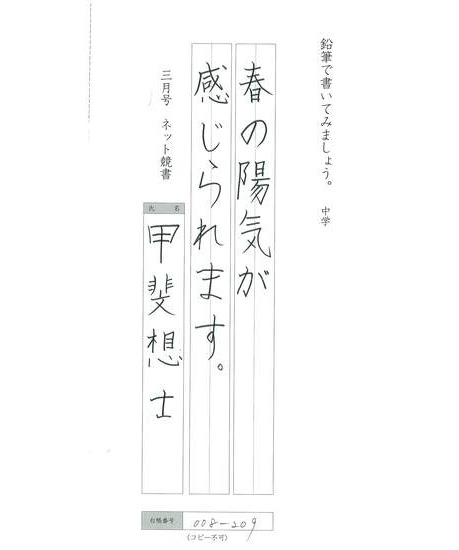 鉛筆で書いてみましょう。 中学
春の陽気が
感じられます。
三月号 ネット競書
氏 名
甲斐想士
台帳番号 008-209
(コピー不可)